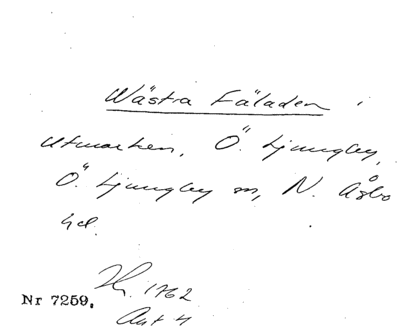 Wästra Fäladen i
utmarken, Ö. Ljungby,
Ö. Ljungby sn, N. Åsbo
hd.
1762
Nr 7259.
Akt 4